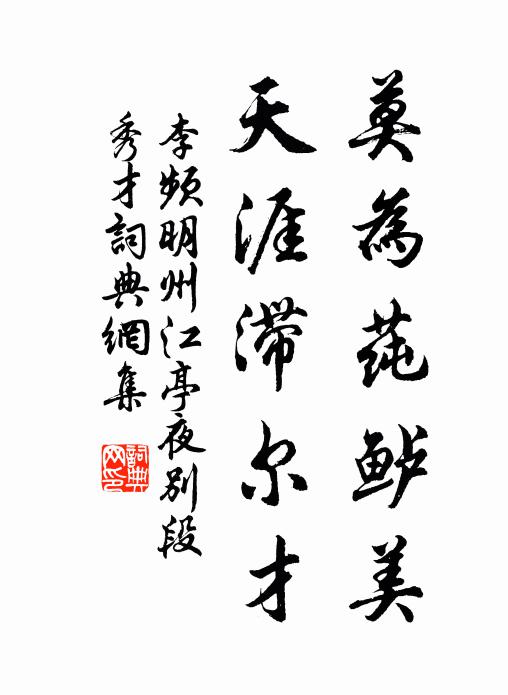 莫為莼鲈美
天涯滞尔才
李频明州江亭夜别段
秀才詞典網集
詞典
网印